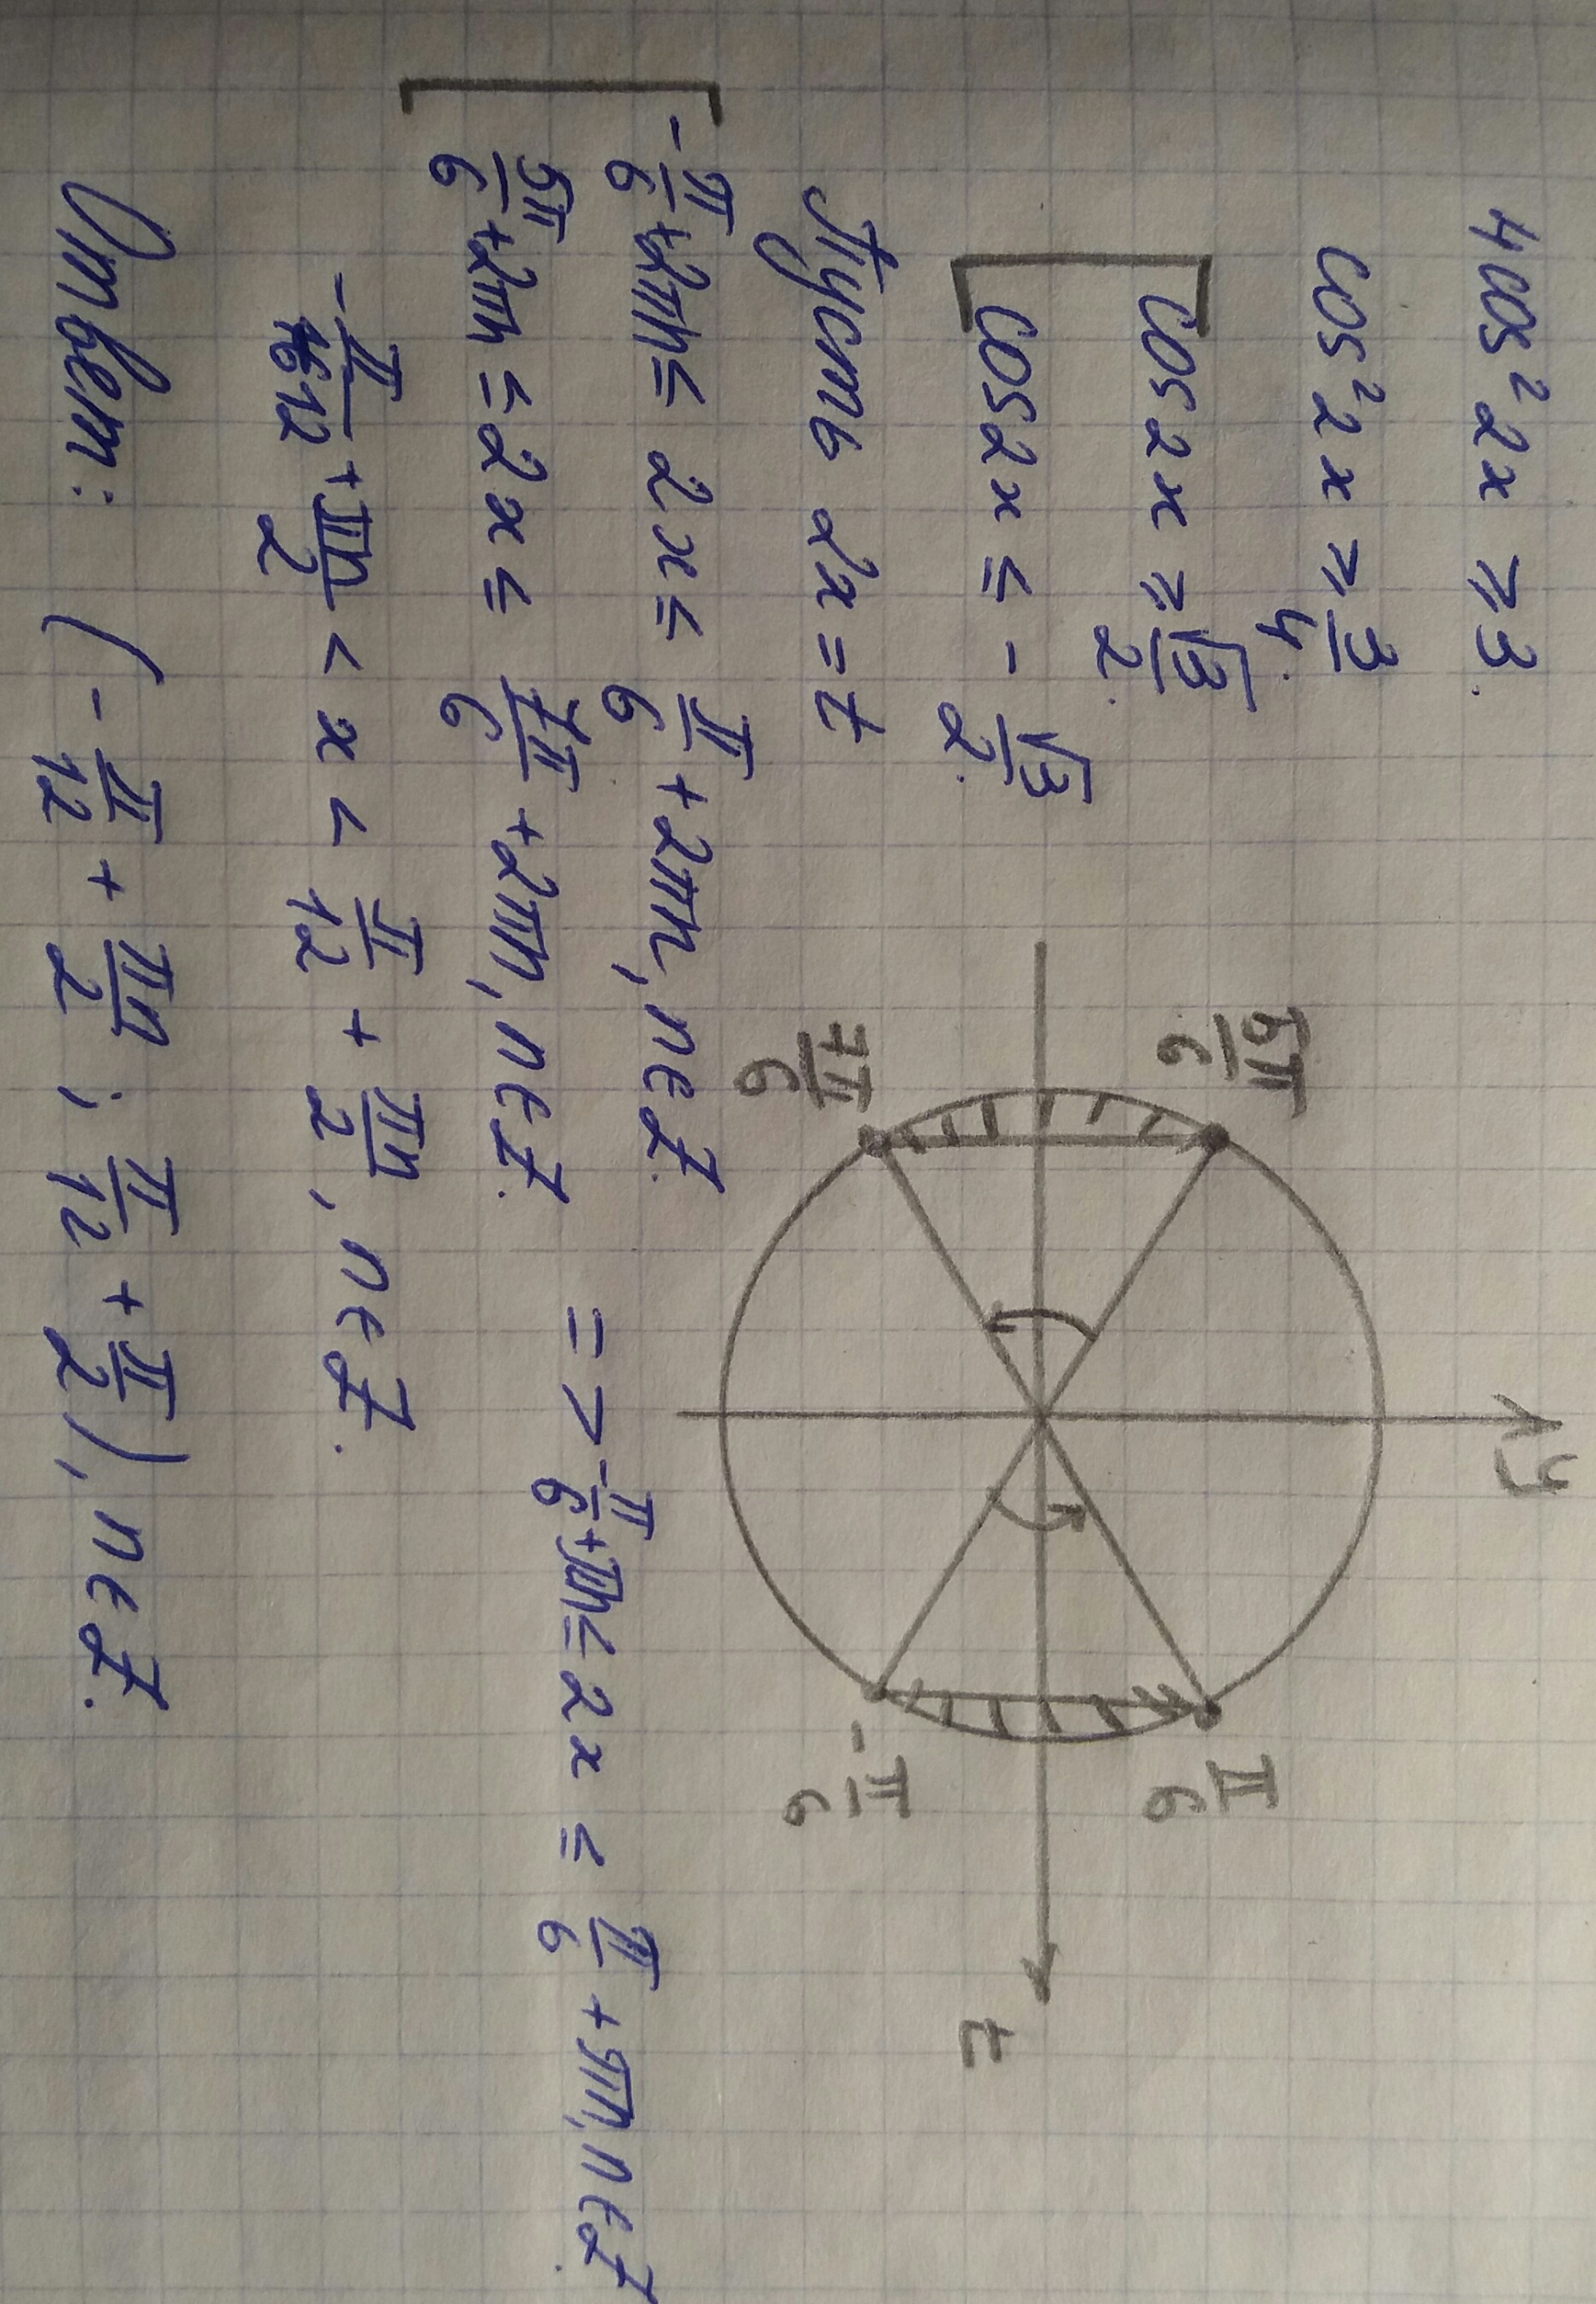 4cos²2x ≥ 3.
cos²2x ≥ 3/4.
cos2x ≥ √3/2.
cos2x ≤ -√3/2.
Пусть 2x = t
y
5π/6
π/6
7π/6
-π/6
t
-π/6+2πn ≤ 2x ≤ π/6+2πn, n∈Z.
5π/6+2πn ≤ 2x ≤ 7π/6+2πn, n∈Z.
=> -π/6+πn ≤ 2x ≤ π/6+πn, n∈Z.
-π/12+πn/2 < x < π/12+πn/2, n∈Z.
Ответ: (-π/12+πn/2; π/12+π/2), n∈Z.